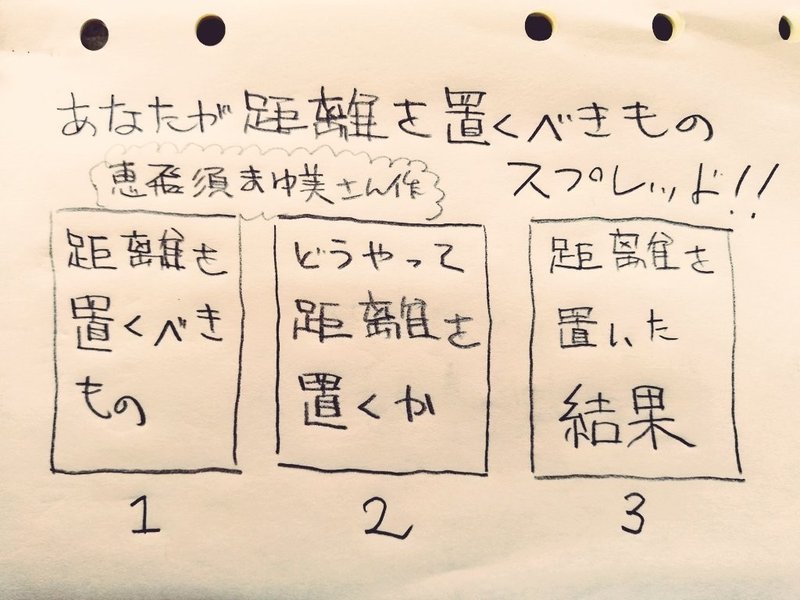 あなたが距離を置くべきもの
スプレッド!!
恵飛須まゆ美さん作
距離を
置くべき
もの
1
どうやって
距離を
置くか
2
距離を
置いた
結果
3